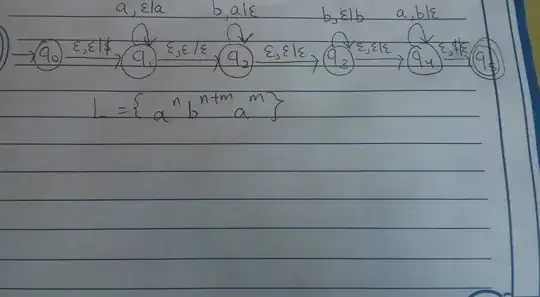 a, ε|a b, a|ε b, ε|b a, b|ε
q₀ ε, ε|$ q₁ ε, ε|ε q₂ ε, ε|ε q₃ ε, ε|ε q₄ ε, $|ε q₅
L = { aⁿ bⁿ⁺ᵐ aᵐ }